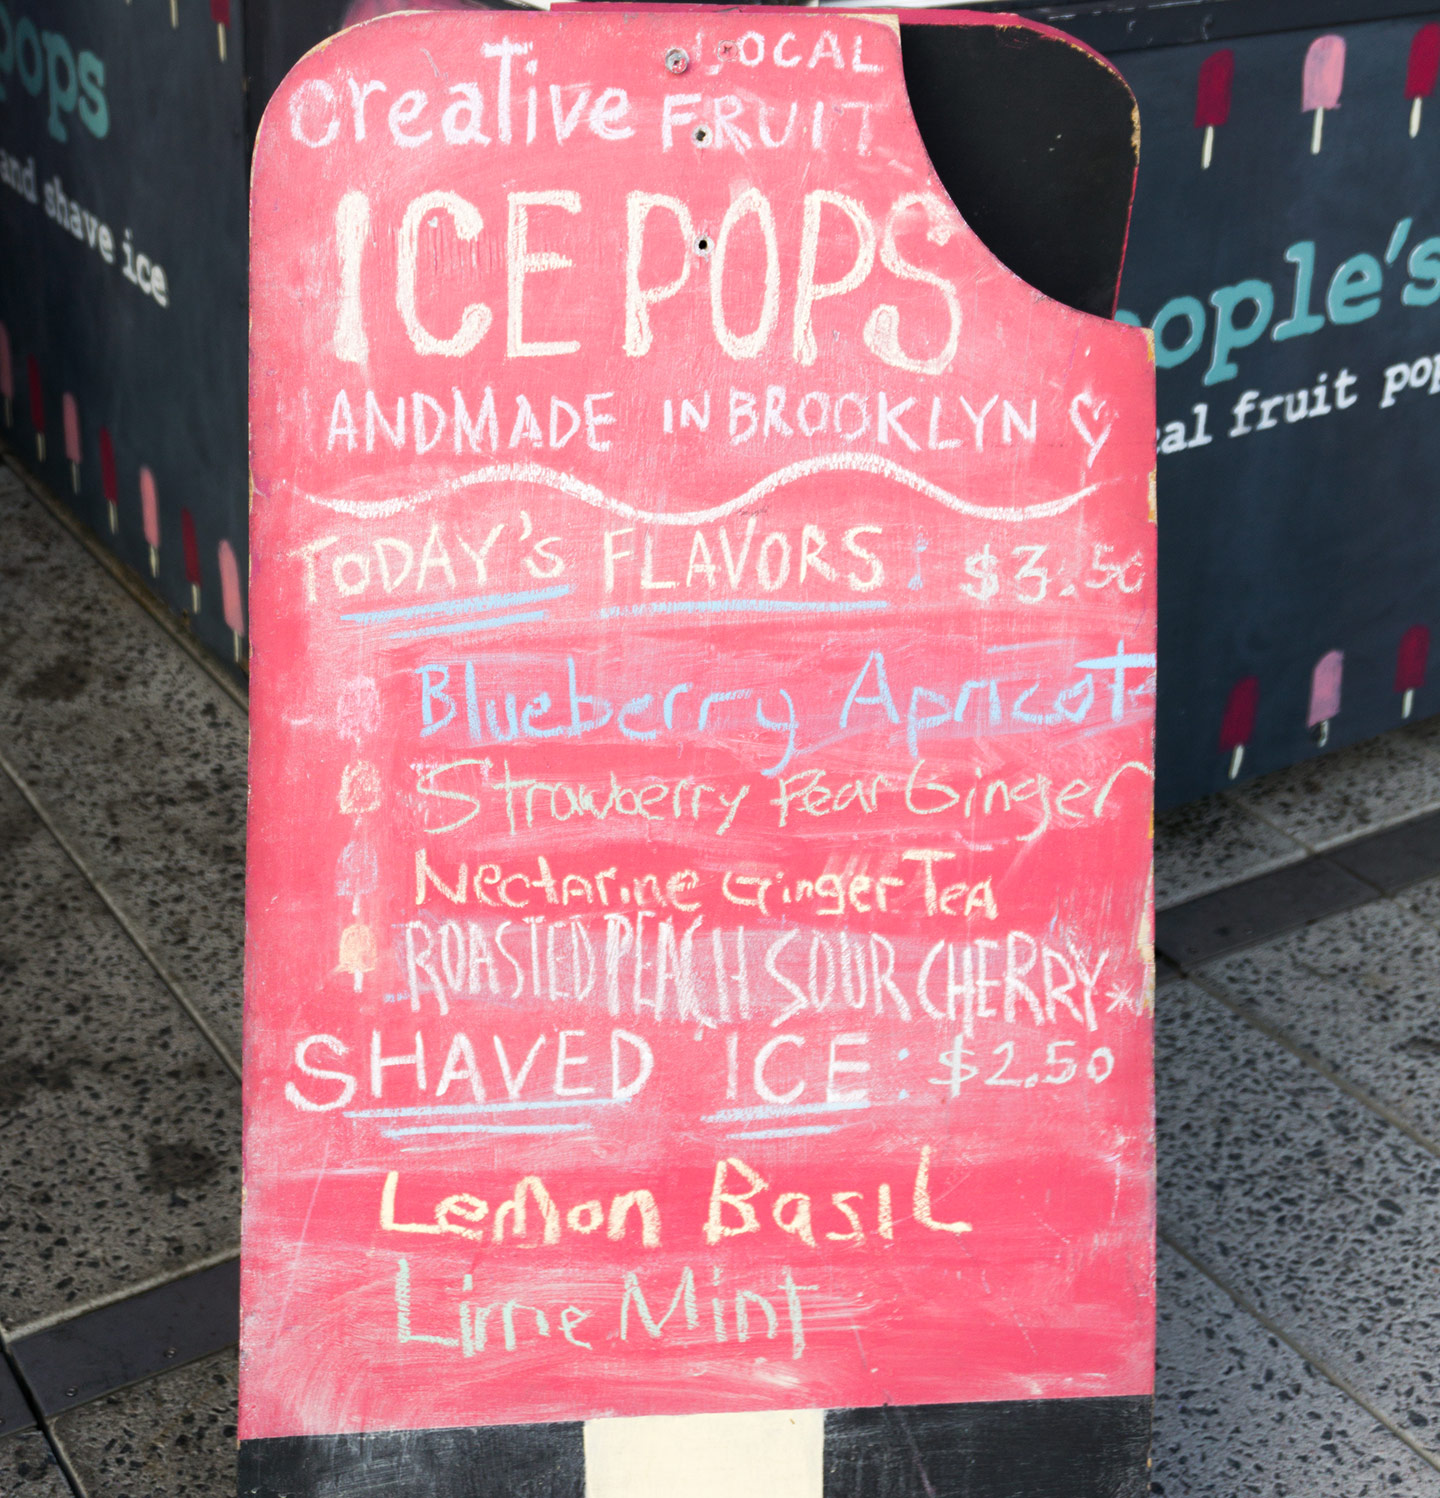 pops
and shave ice
creative LOCAL
FRUIT
ICE POPS
ANDMADE IN BROOKLYN
TODAY'S FLAVORS: $3.50
Blueberry Apricot
Strawberry Pear Ginger
Nectarine Ginger Tea
ROASTED PEACH SOUR CHERRY*
SHAVED ICE: $2.50
Lemon BasiL
Lime Mint
eople's
cal fruit pop